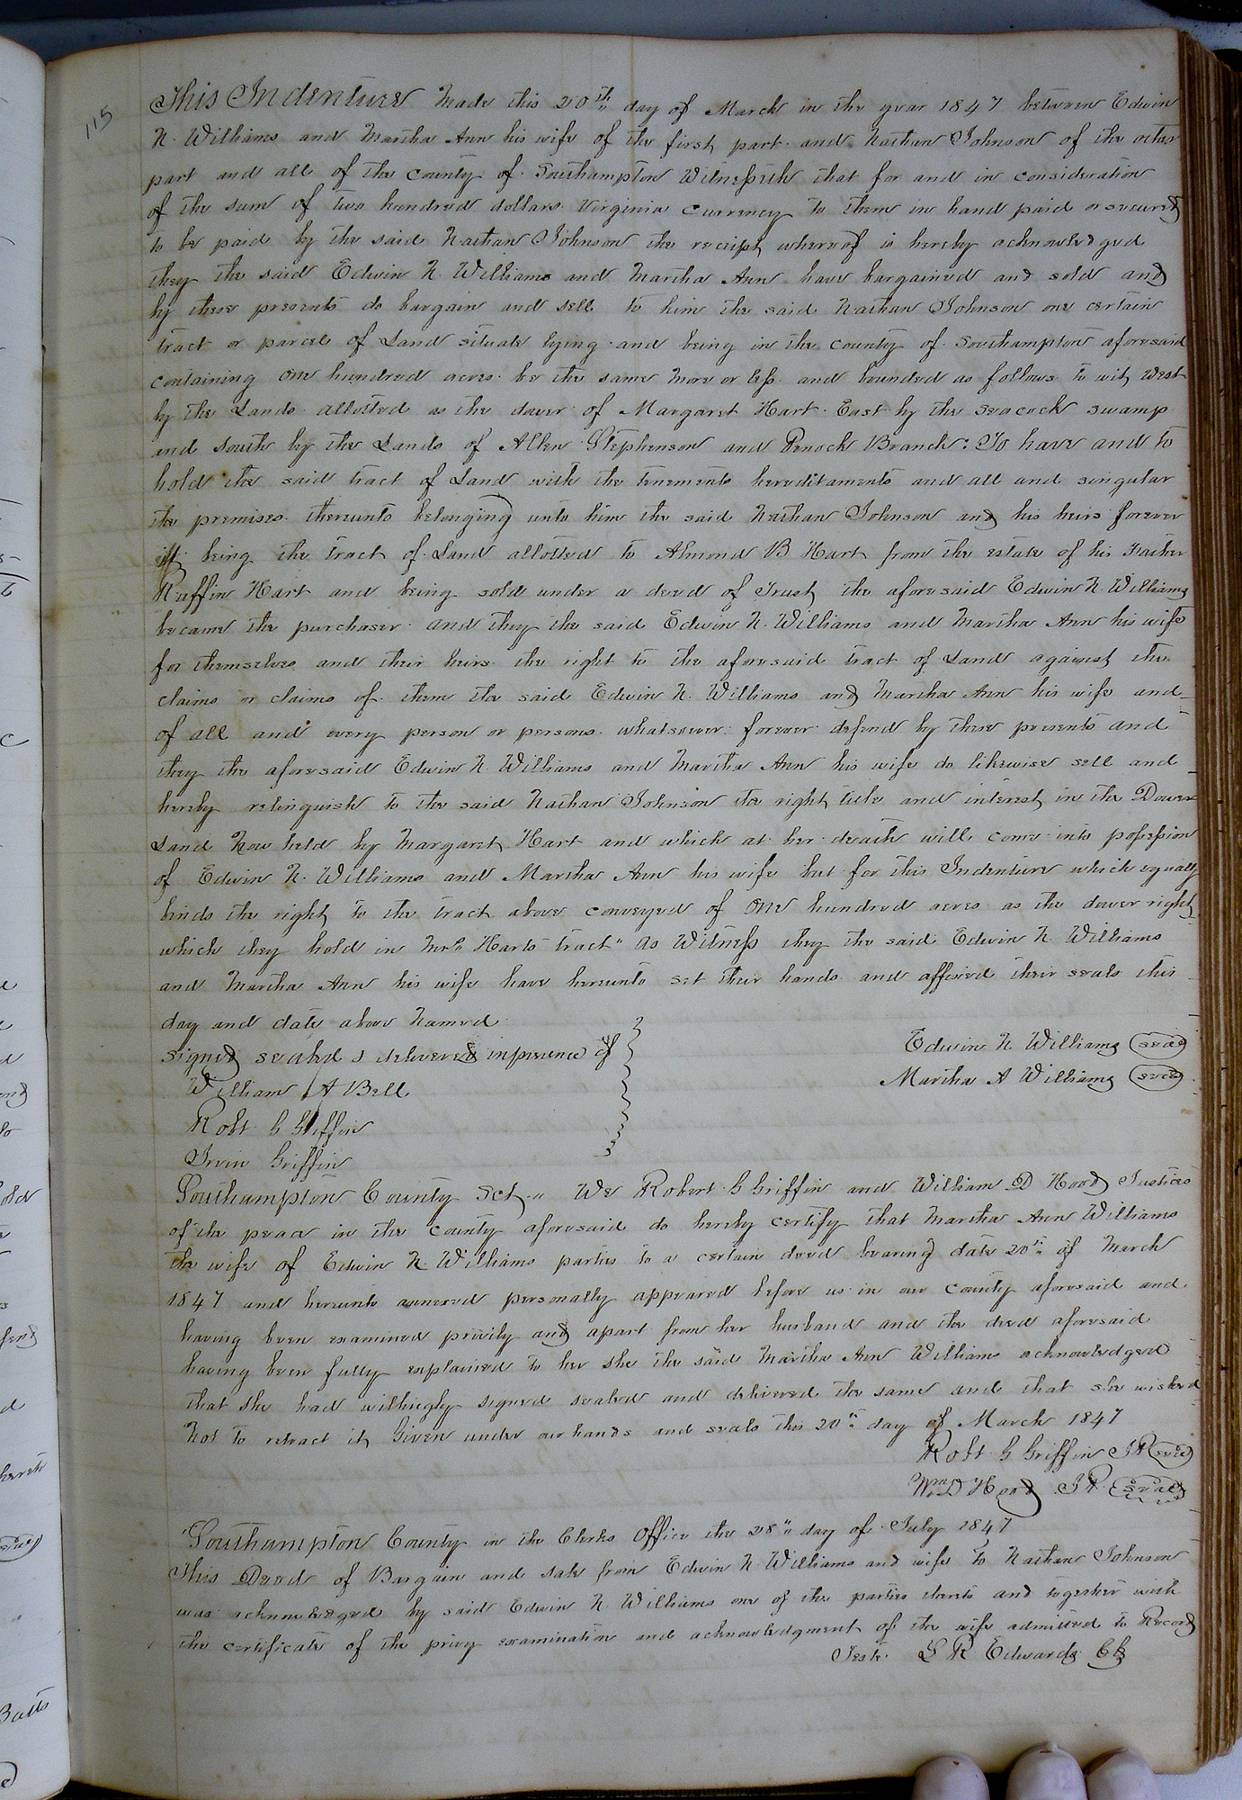 115
This Indenture Made this 20th day of March in the year 1847 between Edwin
N. Williams and Martha Ann his wife of the first part and Nathan Johnson of the other
part and all of the County of Southampton Witnesseth that for and in consideration
of the sum of two hundred dollars Virginia Currency to them in hand paid or secured
to be paid by the said Nathan Johnson the receipt whereof is hereby acknowledged
they the said Edwin N. Williams and Martha Ann have bargained and sold and
by these presents do bargain and sell to him the said Nathan Johnson one certain
tract or parcel of Land situate lying and being in the County of Southampton aforesaid
containing one hundred acres be the same more or less and bounded as follows to wit, West
by the Lands allotted as the dower of Margaret Hart East by the Seacock Swamp
and South by the Lands of Allen Stephenson and Branch: To have and to
hold the said tract of Land with the tenements hereditaments and all and singular
the premises thereunto belonging unto him the said Nathan Johnson and his heirs forever
it being the tract of Land allotted to Almond B Hart from the estate of his Father
Ruffin Hart and being sold under a deed of Trust, the aforesaid Edwin N. Williams
became the purchaser and they the said Edwin N. Williams and Martha Ann his wife
for themselves and their heirs the right to the aforesaid tract of Land against the
claims or claims of them the said Edwin N. Williams and Martha Ann his wife and
of all and every person or persons whatsoever forever defend by these presents and
they the aforesaid Edwin N. Williams and Martha Ann his wife do likewise sell and
hereby relinquish to the said Nathan Johnson the right title and interest in the Dower
Land Now held by Margaret Hart and which at her death will come into possession
of Edwin N. Williams and Martha Ann his wife but for this Indenture which equally
binds the right to the tract above conveyed of One hundred acres as the dower right
which they hold in Mrs Harts tract" As Witness they the said Edwin N. Williams
and Martha Ann his wife have hereunto set their hands and affixed their seals this
day and date above Named
Signed sealed & delivered in presence of
William A Bell
Robt. G Griffin
Irvin Griffin
Edwin N Williams (seal)
Martha A Williams (seal)
Southampton County Sct" We Robert G Griffin and William D Hood Justices
of the peace in the County aforesaid do hereby certify that Martha Ann Williams
the wife of Edwin N. Williams parties to a certain deed bearing date 20th of March
1847 and hereunto annexed personally appeared before us in our County aforesaid and
having been examined privily and apart from her husband and the deed aforesaid
having been fully explained to her she the said Martha Ann Williams acknowledged
that she had willingly signed sealed and delivered the same and that she wished
Not to retract it, Given under our hands and seals this 20th day of March 1847
Robt G Griffin JP (seal)
Wm D Hood JP. (seal)
Southampton County in the Clerks Office the 28th day of July 1847
This Deed of Bargain and sale from Edwin N. Williams and wife To Nathan Johnson
was acknowledged by said Edwin N. Williams one of the parties thereto and together with
the certificate of the privy examination and acknowledgment of the wife admitted to Record
Teste. L R Edwards Clk